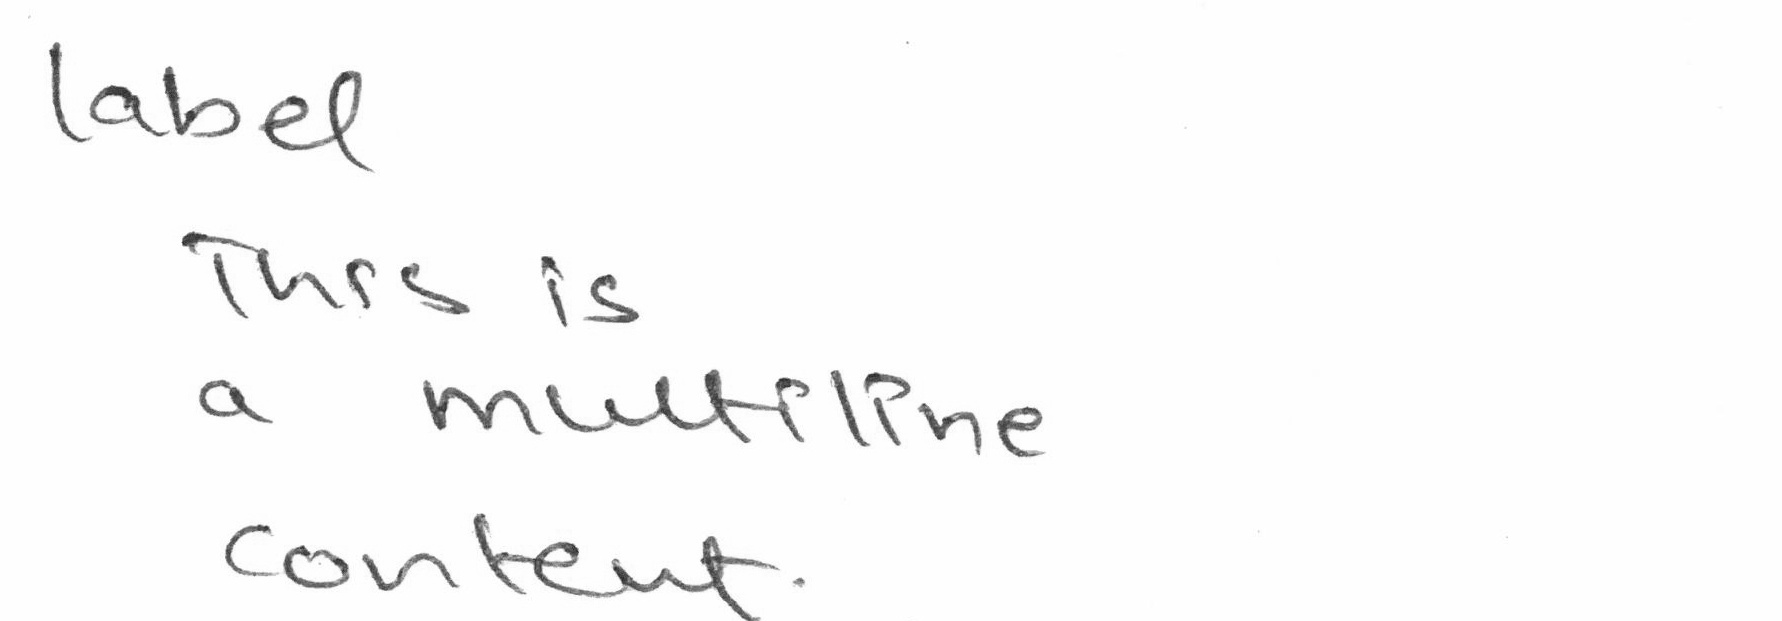 label
This is
a multiline
content.